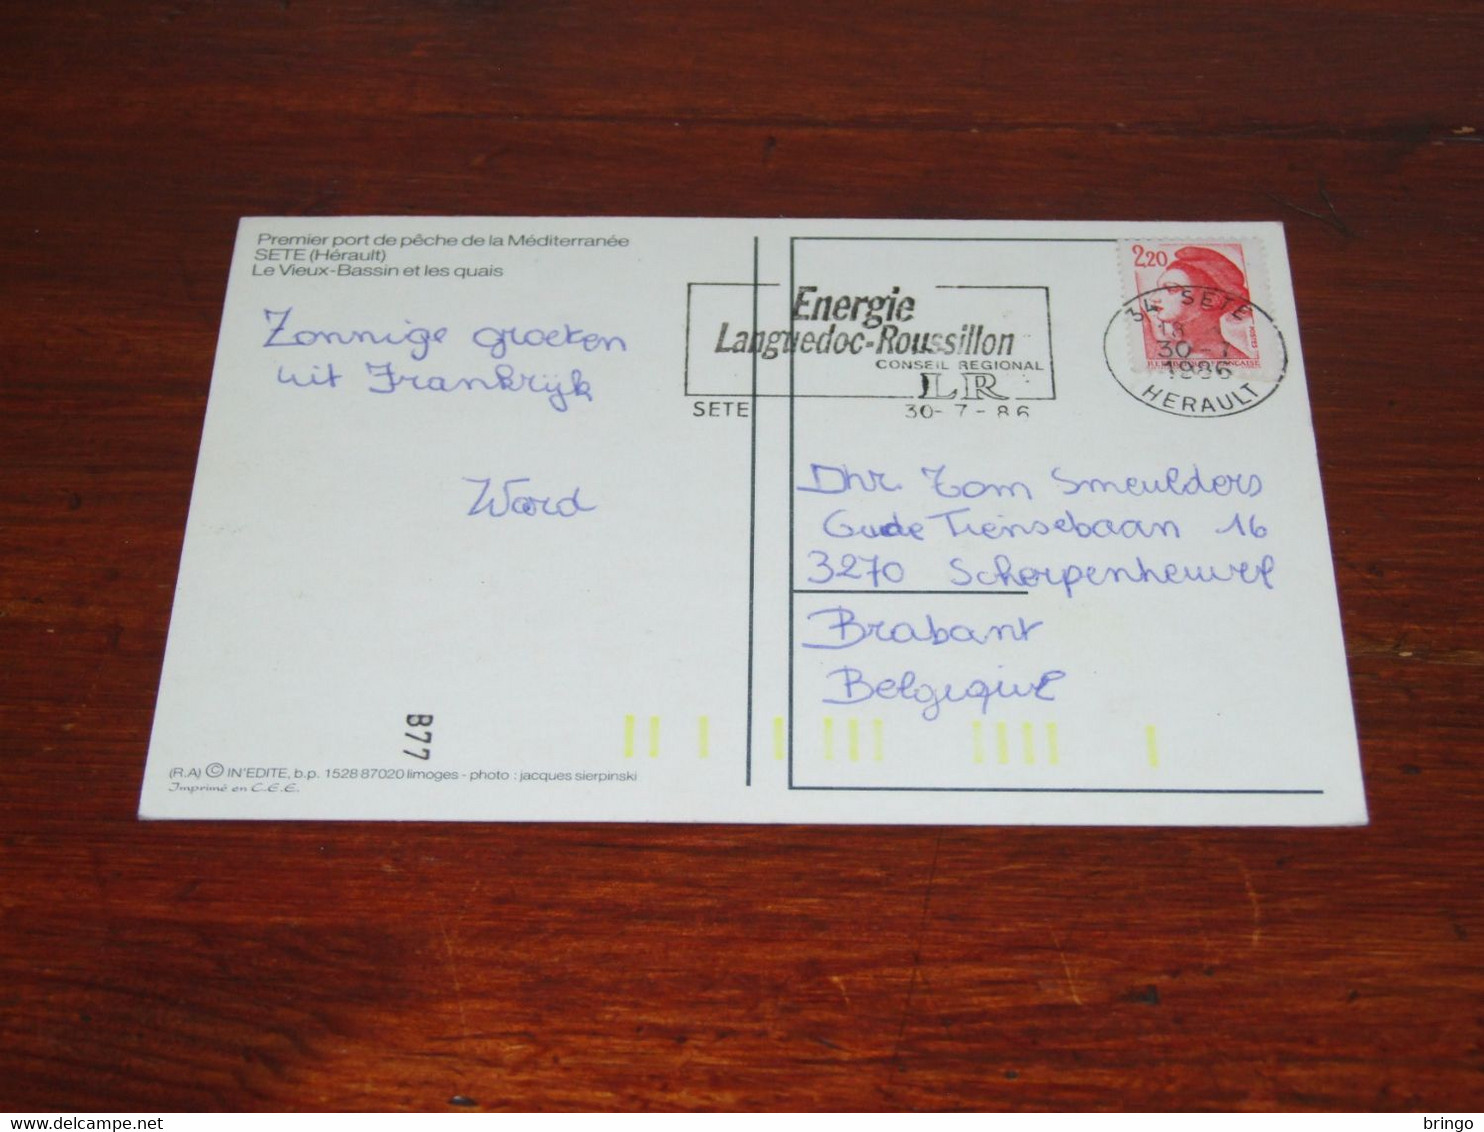 Premier port de pêche de la Méditerranée
SETE (Hérault)
Le Vieux-Bassin et les quais
Zonnige groeten
uit Frankrijk
Ward
Energie
Languedoc-Roussillon
CONSEIL REGIONAL
LR
SETE
30-7-86
2,20
34 SETE
18
30-7
1986
HERAULT
Dhr. Tom Smeulders
Oude Tiensebaan 16
3270 Scherpenheuvel
Brabant
Belgique
B77
(R.A) © IN'EDITE, b.p. 1528 87020 limoges - photo : jacques sierpinski
Imprimé en C.E.E.
delcampe.net
bringo